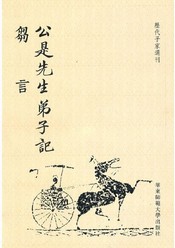 歷代子家選刊
公是先生弟子記
芻言
華東師範大學出版社